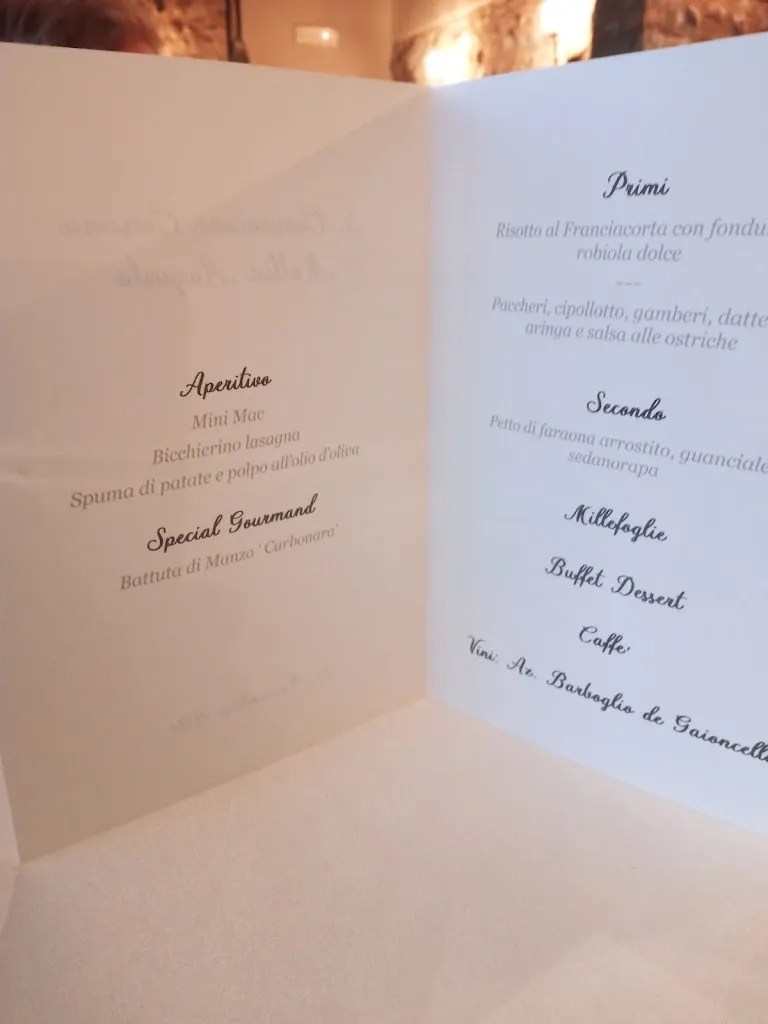 Aperitivo
Mini Mac
Bicchierino lasagna
Spuma di patate e polpo all'olio d'oliva
Special Gourmand
Battuta di Manzo 'Carbonara'
Primi
Risotto al Franciacorta con fondu
robiola dolce
~~~
Paccheri, cipollotto, gamberi, datte
aringa e salsa alle ostriche
Secondo
Petto di faraona arrostito, guanciale
sedanorapa
Millefoglie
Buffet Dessert
Caffe'
Vini: Az. Barboglio de Gaioncell